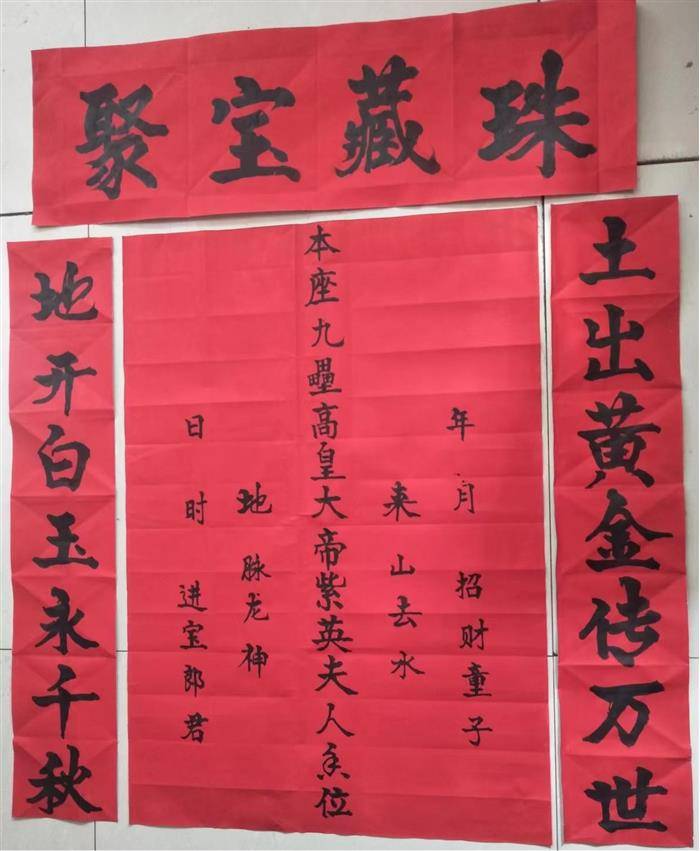 聚宝藏珠
土出黄金传万世
年月招财童子
来山去水
本座九壘高皇大帝紫英夫人香位
地脉龙神
日时进宝郎君
地开白玉永千秋